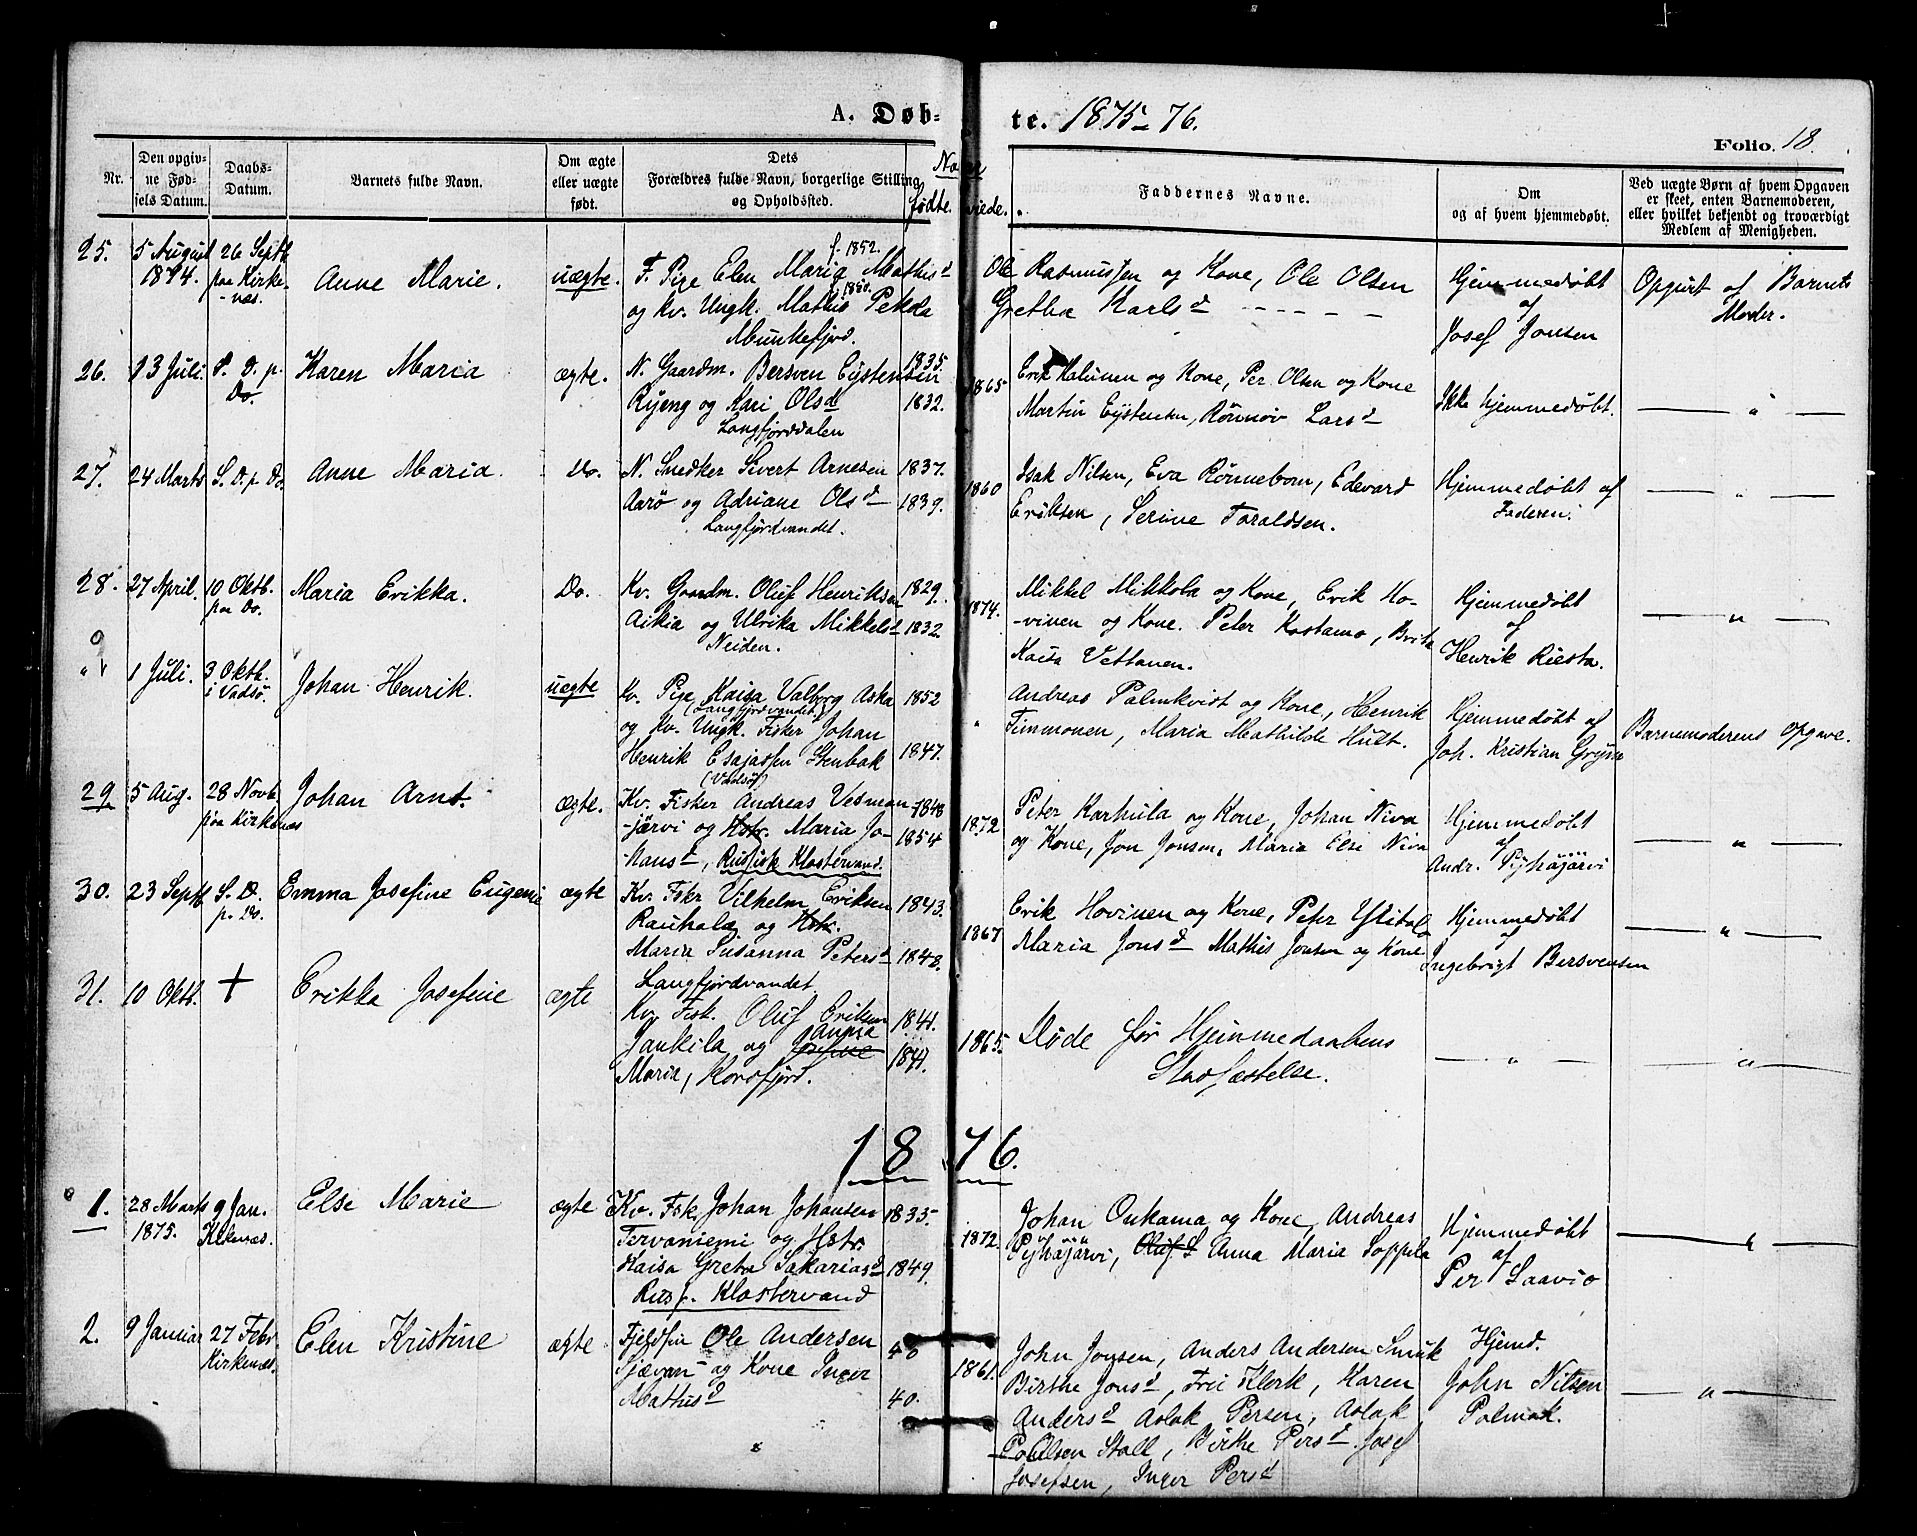 A. Døb- te. 1875-76.
Folio. 18.
Nr.
Den opgiv-
ne Fød-
sels Datum.
Daabs-
Datum.
Barnets fulde Navn.
Om ægte
eller uægte
født.
Dets
Forældres fulde Navn, borgerlige Stilling
og Opholdssted.
Naar
fødte. viede.
Faddernes Navne.
Om
og af hvem hjemmedøbt.
Ved uægte Børn af hvem Opgaven
er skeet, enten Barnemoderen,
eller hvilket bekjendt og troværdigt
Medlem af Menigheden.
25.
5 August
1874.
26 Septb
paa Kirke-
-næs.
Anne Marie.
uægte.
f. 1852.
F. Pige Elen Maria Mathisd
f. 1850.
og kv. Ungk. Mathis Pekola
Munkefjord.
Ole Rasmussen og Kone, Ole Olsen
Gretha Karlsd - - - - -
Hjemmedøbt
af
Josef Jonsen
Opgivt af Barnets
Moder.
26.
13 Juli.
S. D. p.
Do.
Karen Maria
ægte.
N. Gaardm. Bersven Eystensen
Ryeng og Kari Olsd
Langfjorddalen
1835.
1832.
1865
Erik Kalunen og Kone, Per Olsen og Kone
Martin Eystensen, Rønnov Larsd
Ikke hjemmedøbt.
— " —
27.
24 Marts
S. D. p Do.
Anne Maria
Do.
N. Snedker Sivert Arnesen
Aarø og Adriane Olsd
Langfjordvandet.
1837.
1839.
1860
Isak Nilsen, Eva Rønnebom, Edevard
Eriksen, Serine Toraldsen.
Hjemmedøbt af
Faderen.
— " —
28.
27 April.
10 Oktb.
paa Do.
Maria Erikka.
Do.
Kv. Gaardm. Oluf Henriksen
Aikia og Ulrika Mikkelsd
Neiden.
1829.
1832.
1874.
Mikkel Mikkola og Kone, Erik Ho-
-vinen og Kone. Peter Kostamo, Brita
Kaisa Vettanen.
Hjemmedøbt
af
Henrik Riesta.
— " —
9
" "
1 Juli.
3 Oktb.
i Vadsø.
Johan Henrik.
uægte
Kv. Pige Kaisa Valborg Aska
(Langfjordvandet)
og Kv. Ungk. Fisker Johan
Henrik Esajassen Stenbak
(Vadsø)
1852
1847.
"
Andreas Palmkvist og Kone, Henrik
Timmonen, Maria Mathilde Hult.
Hjemmedøbt af
Joh. Kristian
Barnemoderens Opgave.
29.
5 Aug.
28 Novb.
paa Kirkenæs
Johan Arnt.
ægte.
Kv. Fisker Andreas Vesman-
-järvi og Hstr. Maria Jo-
-hansd, Russisk Klostervand.
1848
1854
1872
Peter Karhula og Kone, Johan Niva
og Kone, Jon Jonsen, Maria Elsi Niva
Hjemmedøbt
af
Andr. Pyhäjärvi
— " —
30.
23 Septb
S. D.
p. Do.
Emma Josefine Eugenie
ægte
Kv. Fskr Vilhelm Eriksen
Rauhala og Hstr.
Maria Susanna Petersd
Langfjordvandet.
1843.
1848.
1867
Erik Hovinen og Kone, Peter Ylitalo
Maria Jonsd Mathis Jonsen og Kone
Hjemmedøbt
af
Ingebrigt Bersvensen
— " —
31.
10 Oktb.
+
Erikka Josefine
ægte
Kv. Fisk. Oluf Eriksen
Jankila og Josefine Anna
Maria, Korsfjord.
1841.
1841.
1865.
Døde før Hjemmedaabens
Stadfæstelse.
— " —
— " —
1876.
1.
28 Marts
1875.
9 Jan.
Kirkenæs.
Else Marie
ægte
Kv. Fsk. Johan Johansen
Tervaniemi og Hstr.
Kaisa Greta Sakariasd
Russ. Klostervand
1835.
1849.
1872.
Johan Onkama og Kone, Andreas
Pyhäjärvi, Oluf S Anna Maria Soppela
Hjemmedøbt
af
Per Saavio
— " —
2.
9 Januar
27 Febr.
Kirkenæs.
Elen Kristine
ægte
Fjeldfin Ole Andersen
Sjævan og Kone Inger
Mathisd
40
40.
1861.
John Jonsen, Anders Andersen Smuk
Birthe Jonsd, Fri Klerk, Karen
Andersd Aslak Persen, Aslak
Poulsen Stall, Birthe Persd. Josef
Josefsen, Inger Persd
Hjemd.
John Nilsen
Polmak.
— " —